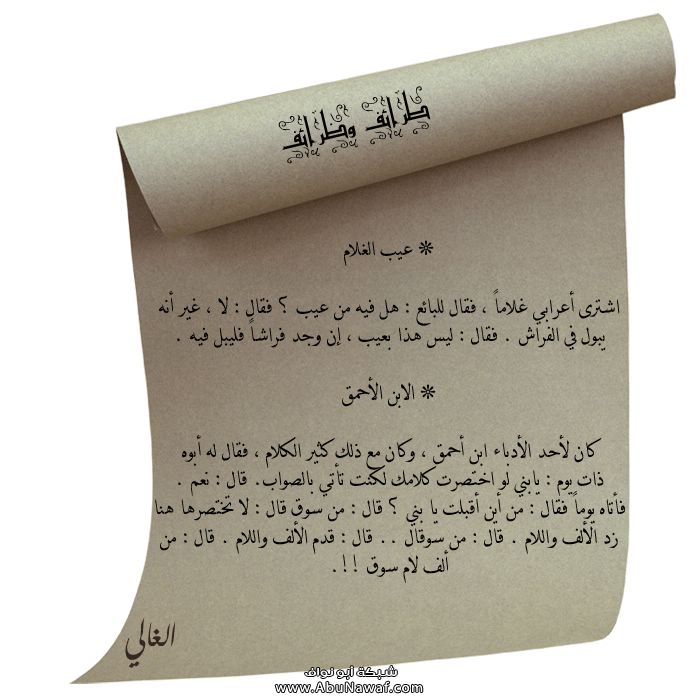 طرائف وظرائف
❊ عيب الغلام
اشترى أعرابي غلاماً ، فقال للبائع : هل فيه من عيب ؟ فقال : لا ، غير أنه
يبول في الفراش . فقال : ليس هذا بعيب ، إن وجد فراشاً فليبل فيه .
❊ الابن الأحمق
كان لأحد الأدباء ابن أحمق ، وكان مع ذلك كثير الكلام ، فقال له أبوه
ذات يوم : يابني لو اختصرت كلامك لكنت تأتي بالصواب. قال : نعم .
فأتاه يوماً فقال : من أين أقبلت يا بني ؟ قال : من سوق قال : لا تختصرها هنا
زد الألف واللام . قال : من سوقال . . قال : قدم الألف واللام . قال : من
ألف لام سوق !! .
الغالي
شبكة أبو نواف
www.AbuNawaf.com